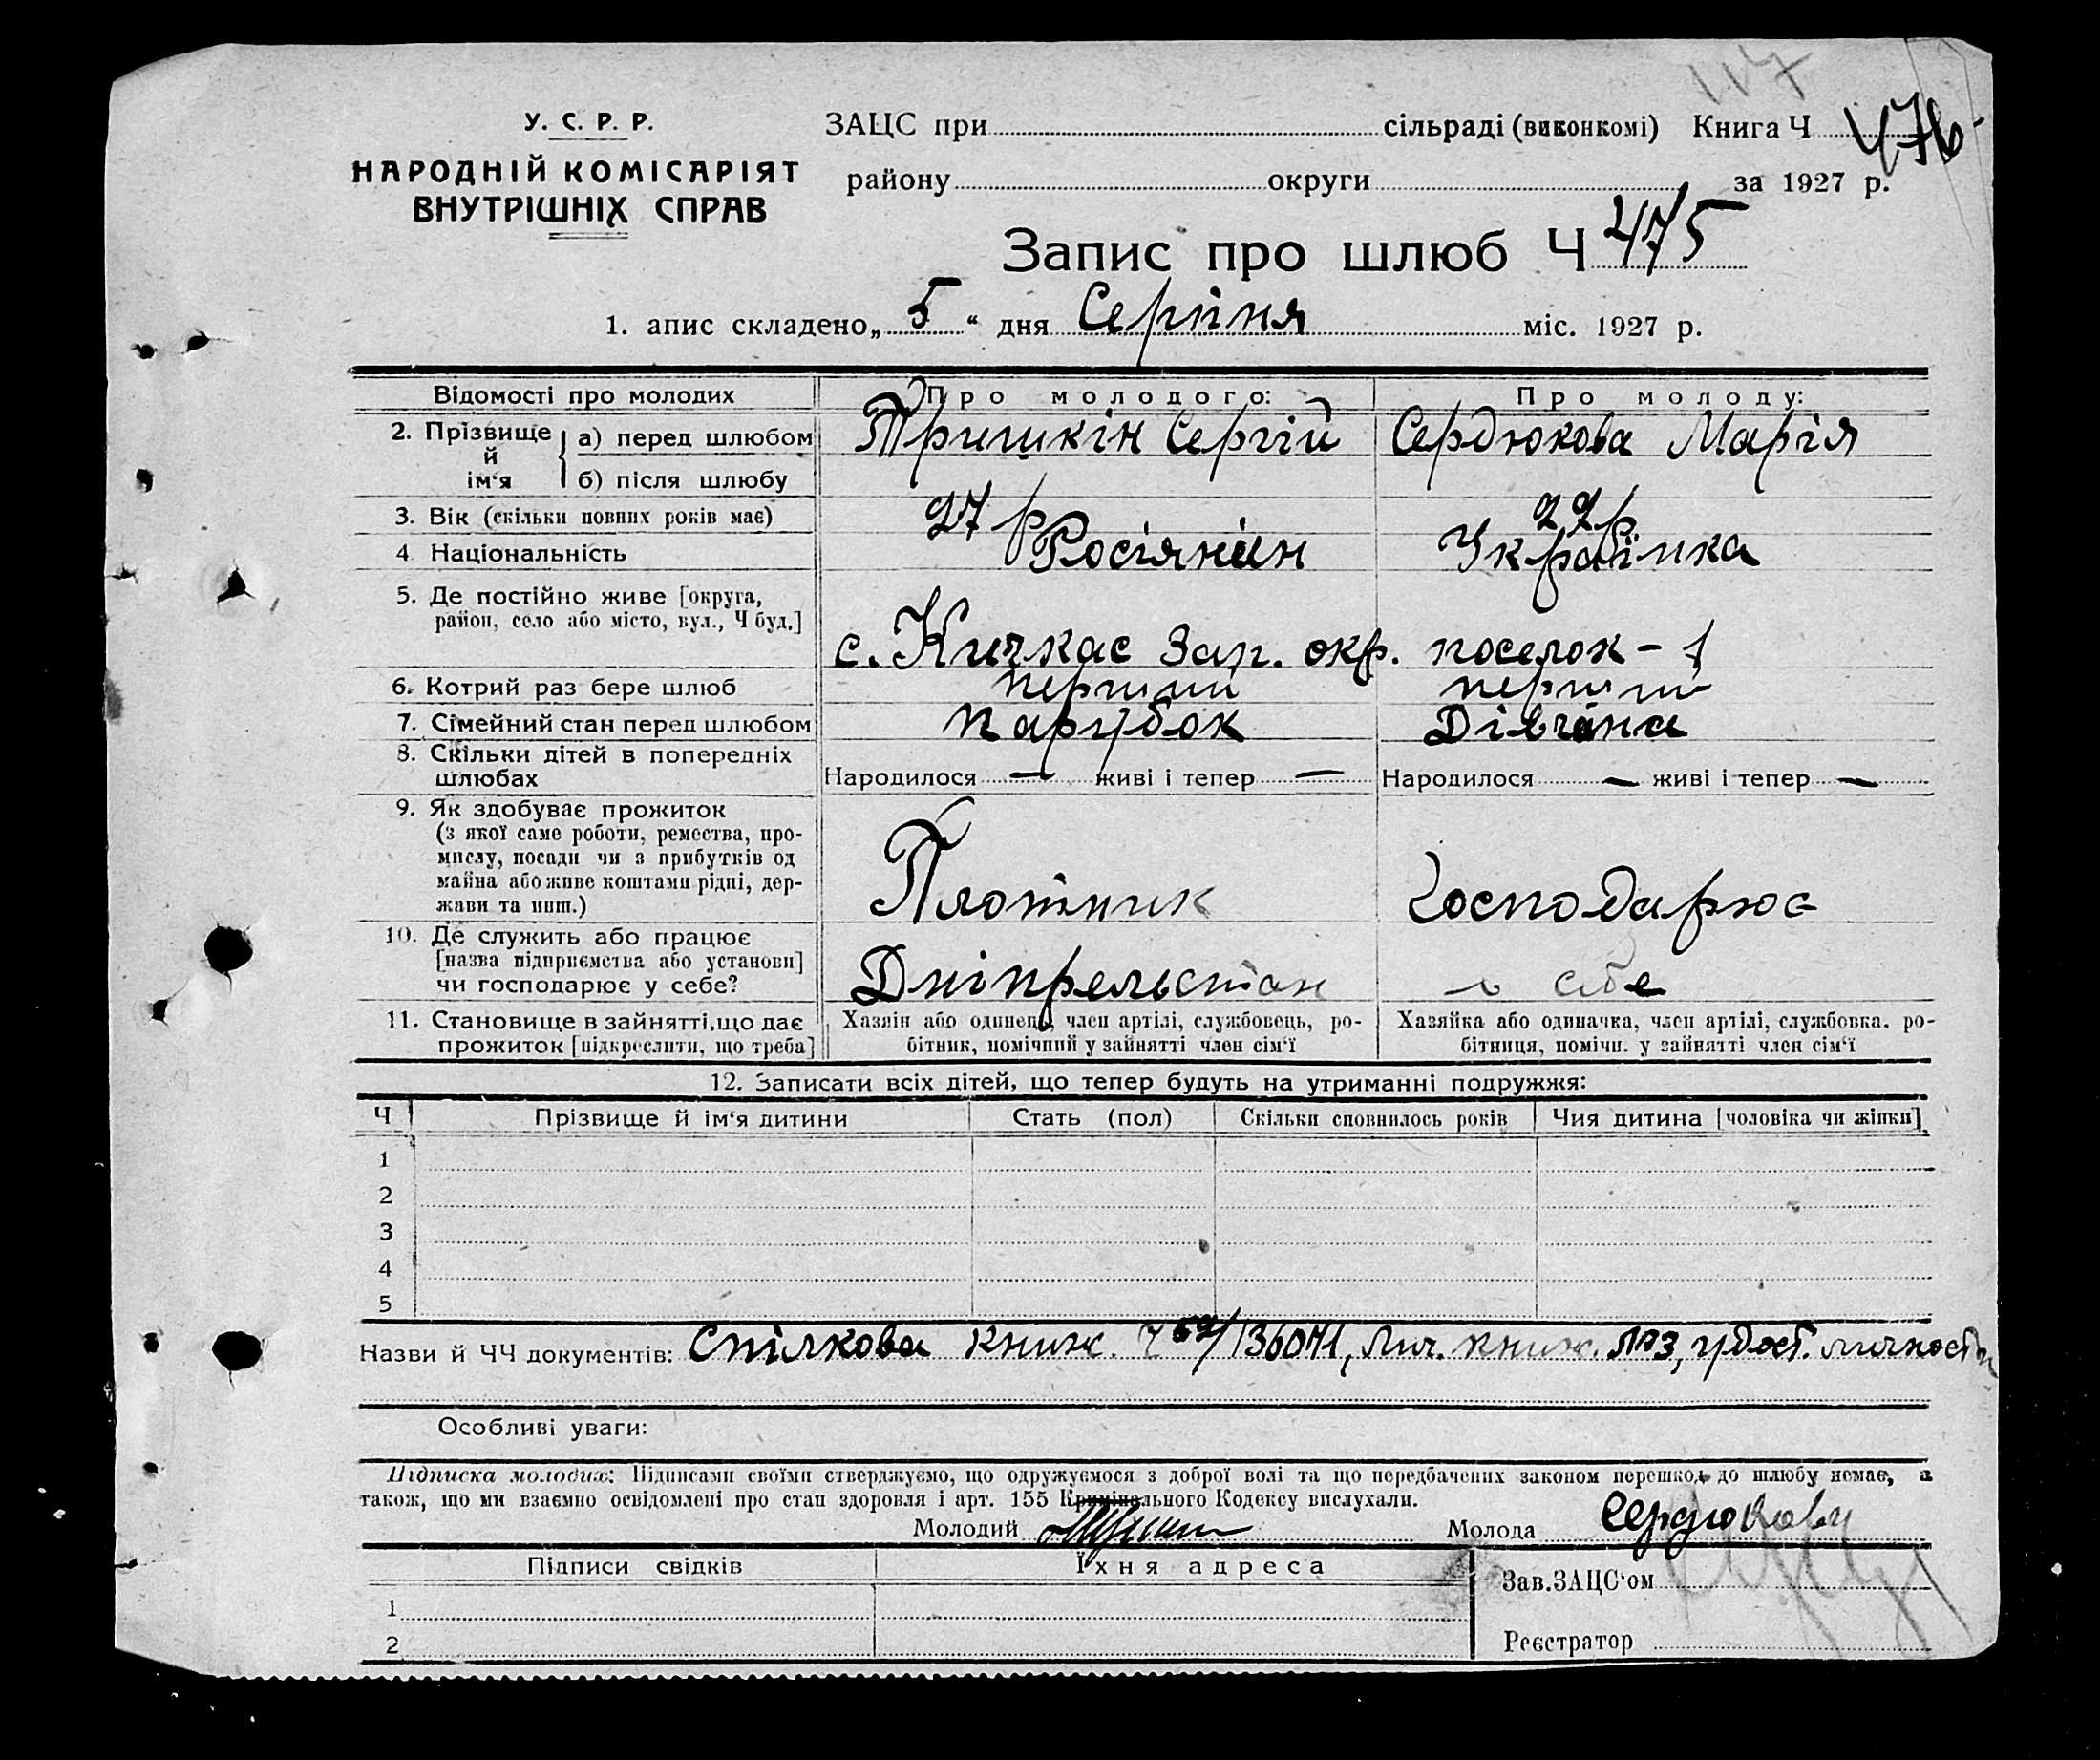 117
У. С. Р. Р.
НАРОДНІЙ КОМІСАРІЯТ
ВНУТРІШНІХ СПРАВ
ЗАЦС при сільраді (виконкомі) Книга Ч 476
району округи за 1927 р.
Запис про шлюб Ч 475
1. апис складено „5“ дня Серпня міс. 1927 р.
Відомості про молодих Про молодого: Про молоду:
2. Прізвище й ім‘я а) перед шлюбом Тришкін Сергій Сердюкова Марія
б) після шлюбу
3. Вік (скільки повних років має) 27 р 22 р
4 Національність Росіянин Українка
5. Де постійно живе [округа,
район, село або місто, вул., Ч буд.] с. Кичкас Зап. окр. поселок - 1
6. Котрий раз бере шлюб перший перший
7. Сімейний стан перед шлюбом парубок Дівчина
8. Скільки дітей в попередніх
шлюбах Народилося — живі і тепер — Народилося — живі і тепер —
9. Як здобуває прожиток
(з якої саме роботи, ремества, про-
мислу, посади чи з прибутків од
майна або живе коштами рідні, дер-
жави та инш.) Плотник Господарює
10. Де служить або працює
[назва підприємства або установи]
чи господарює у себе? Дніпрельстан в себе
11. Становище в зайнятті, що дає
прожиток [підкреслити, що треба]
Хазяін або одинець, член артілі, службовець, ро-
бітник, помічний у зайнятті член сім‘ї
Хазяйка або одиначка, член артілі, службовка, ро-
бітниця, помічн. у зайнятті член сім‘ї
12. Записати всіх дітей, що тепер будуть на утриманні подружжя:
Ч Прізвище й ім‘я дитини Стать (пол) Скільки сповнилось років Чия дитина [чоловіка чи жінки]
1
2
3
4
5
Назви й ЧЧ документів: Спілкова книж. 136071, Лич. книж. №3, удост. личности
Особливі уваги:
Підписка молодих: Підписами своїми стверджуємо, що одружуємося з доброї волі та що передбачених законом перешкод до шлюбу немає, а
також, що ми взаємно освідомлені про стан здоровля і арт. 155 Кримінального Кодексу вислухали.
Молодий Молода Сердюкова
Підписи свідків Їхня адреса
Зав. ЗАЦС‘ом
1
2
Реєстратор